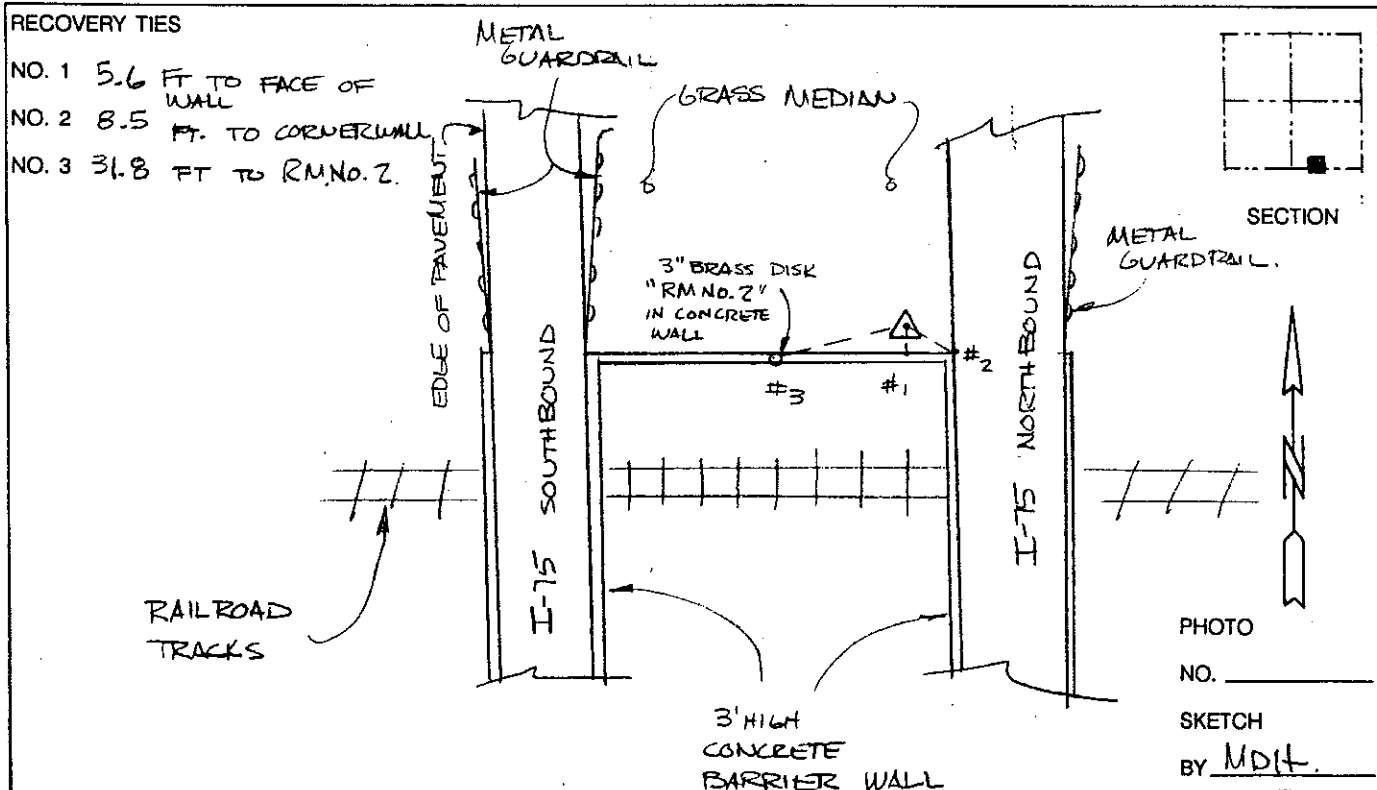 RECOVERY TIES
NO. 1 5.6 FT TO FACE OF
WALL
NO. 2 8.5 FT. TO CORNERWALL
NO. 3 31.8 FT TO RM.NO.2.
METAL
GUARDRAIL
GRASS MEDIAN
SECTION
EDGE OF PAVEMENT
3" BRASS DISK
"RM NO.2"
IN CONCRETE
WALL
METAL
GUARDRAIL.
#3
#1
#2
I-75 SOUTHBOUND
I-75 NORTHBOUND
N
RAILROAD
TRACKS
3' HIGH
CONCRETE
BARRIER WALL
PHOTO
NO.
SKETCH
BY MDH.